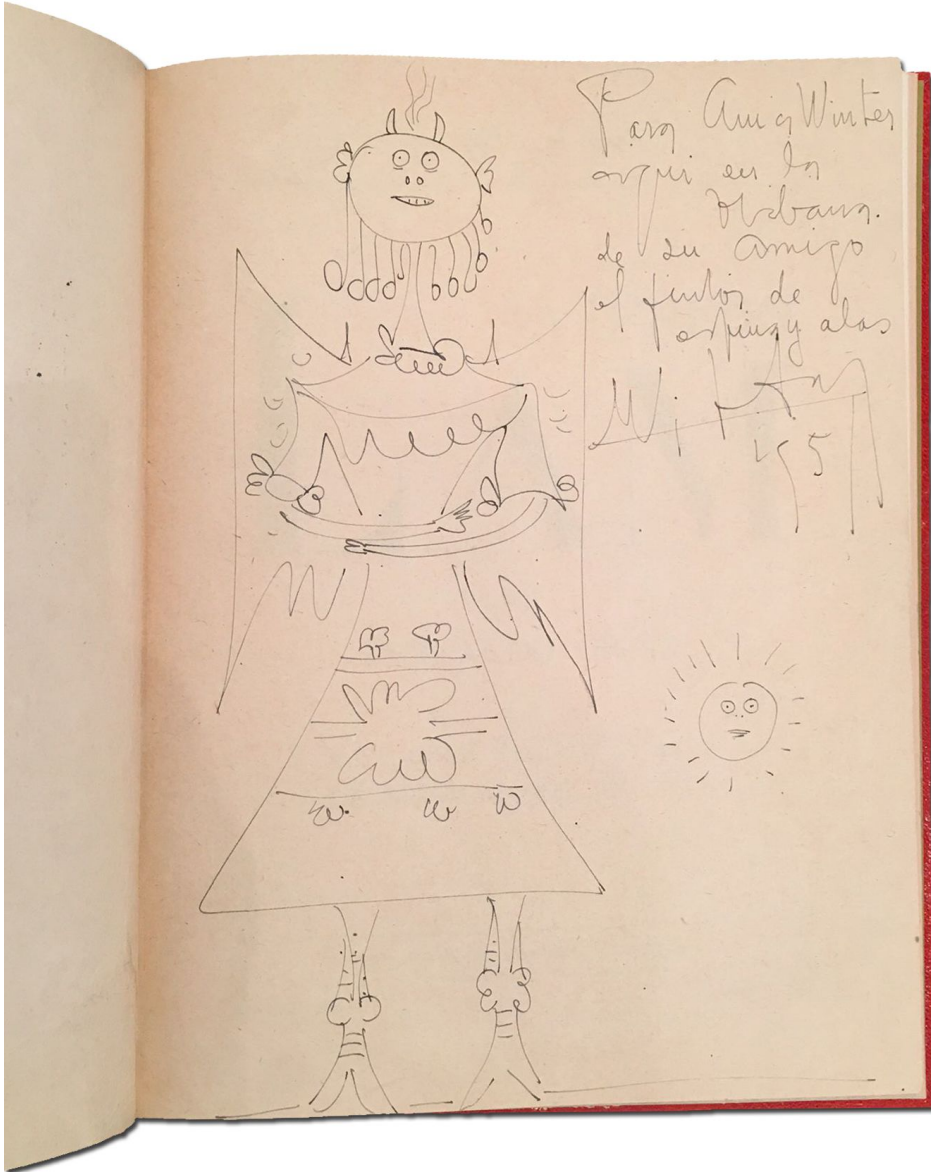 Para Ania Winter
aqui en la
Habana.
de su amigo
el pintor de
espinas y alas
55